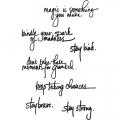 magic is something
you make.
kindle your spark
of madness.
stay kind.
don't take these
moments for granted.
keep taking chances.
stay brave.
stay strong.